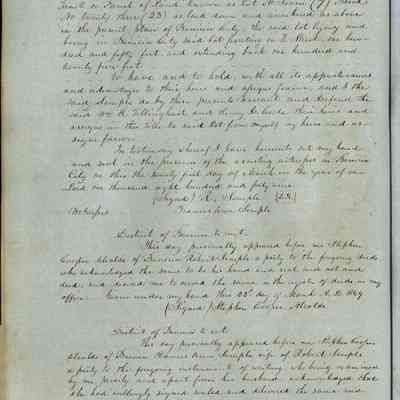 tract or Parcel of Land known as Lot No Seven (7) Block
No twenty three (23) as laid down and numbered as above
in the present plan of Benicia City the said lot lying and
being in Benicia City said lot fronting on D Street one hun-
dred and fifty feet and extending back one hundred and
twenty five feet.
To have and to hold, with all its appurtenances
and advantages to their heirs and assigns forever, and I the
said Semple do by these presents warrant and defend the
said Wm R. Tillinghast and Henry their heirs and
assigns in the title to said Lot from myself my heirs and as-
signs forever.
In testimony whereof I have hereunto set my hand
and seal in the presence of the assisting witnesses in Benicia
City on this the twenty first day of March in the year of our
Lord one thousand eight hundred and forty nine.
(Signed) R. Semple {L.S.}
Witnesses Frances Ann Semple
District of Benicia to wit.
This day personally appeared before me Stephen
Cooper Alcalde of Benicia Robert Semple a party to the foregoing deeds
who acknowledged the same to be his hand and seal and act and
deed, and desired me to record the same in the register of deeds in my
office. Given under my hand this 23d day of March A.D. 1849
(Signed) Stephen Cooper Alcalde
District of Benicia to wit.
This day personally appeared before me Stephen Cooper
Alcalde of Benicia Frances Ann Semple wife of Robert Semple
a party to the foregoing instrument of writing, who being examined
by me privily and apart from her husband acknowledged that
she had willingly signed sealed and delivered the same and